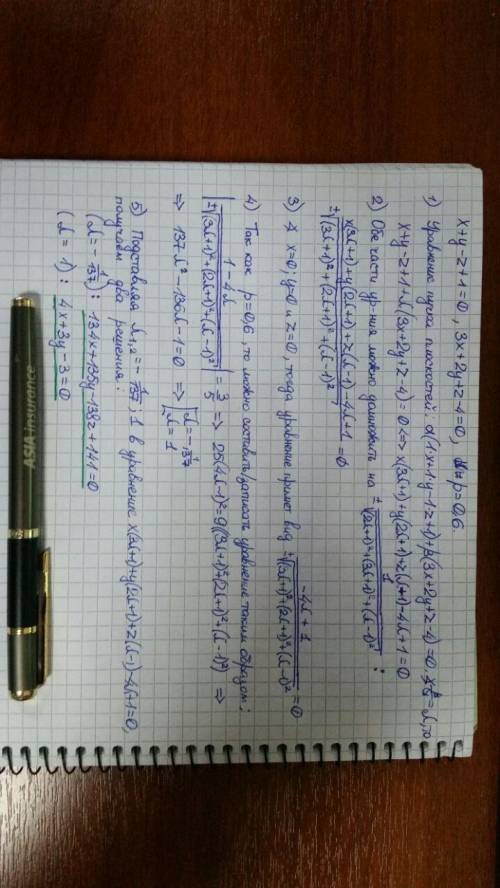 x+y-z+1=0, 3x+2y+z-4=0, p=0,6.
1) Уравнение пучка плоскостей: α(1·x+1·y-1·z+1)+β(3x+2y+z-4)=0. β/α=λ, то
x+y-z+1+λ(3x+2y+z-4)=0 <=> x(3λ+1)+y(2λ+1)+z(λ-1)-4λ+1=0
2) Обе части ур-ния можно домножить на ± 1/√((2λ+1)²+(3λ+1)²+(λ-1)²) :
(x(3λ+1)+y(2λ+1)+z(λ-1)-4λ+1)/(±√((3λ+1)²+(2λ+1)²+(λ-1)²)) = 0
3) x=0; y=0 и z=0, тогда уравнение примет вид (-4λ+1)/(±√((3λ+1)²+(2λ+1)²+(λ-1)²)) = 0
4) Так как p=0,6, то можно составить/записать уравнение таким образом:
|(1-4λ)/(±√((3λ+1)²+(2λ+1)²+(λ-1)²))| = 3/5 => 25(4λ-1)²=9((3λ+1)²+(2λ+1)²+(λ-1)²) =>
=> 137λ²-136λ-1=0 => [λ=-1/137 λ=1
5) Подставляя λ1,2=-1/137; 1 в уравнение x(3λ+1)+y(2λ+1)+z(λ-1)-4λ+1=0,
получаем два решения:
(λ=-1/137): 134x+135y-138z+141=0
(λ=1): 4x+3y-3=0
ASIA insurance